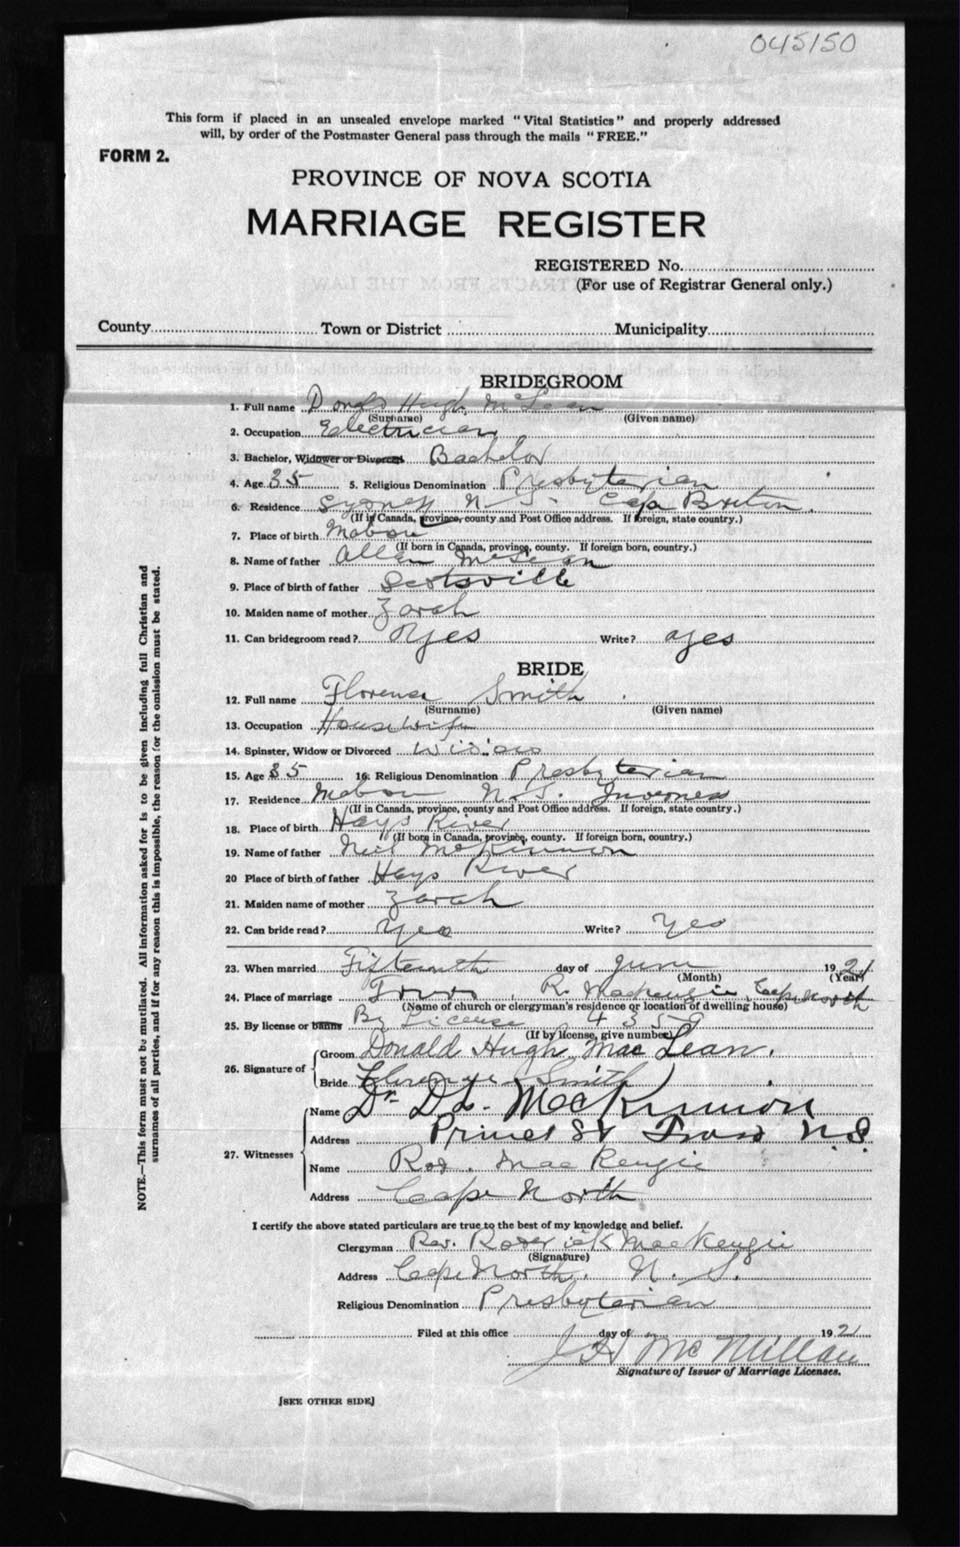 045150
This form if placed in an unsealed envelope marked "Vital Statistics" and properly addressed
will, by order of the Postmaster General pass through the mails "FREE."
FORM 2.
PROVINCE OF NOVA SCOTIA
MARRIAGE REGISTER
REGISTERED No.
(For use of Registrar General only.)
County Town or District Municipality
BRIDEGROOM
1. Full name Hugh McLean
(Surname) (Given name)
2. Occupation Electrician
3. Bachelor, Widower or Divorced Bachelor
4. Age 35 5. Religious Denomination Presbyterian
6. Residence Sydney N. S. Cape Breton.
(If in Canada, province, county and Post Office address. If foreign, state country.)
7. Place of birth Mabou
(If born in Canada, province, county. If foreign born, country.)
8. Name of father Allan McLean
9. Place of birth of father Scotsville
10. Maiden name of mother Zarah
11. Can bridegroom read? Yes Write? Yes
BRIDE
12. Full name Florence Smith
(Surname) (Given name)
13. Occupation Housewife
14. Spinster, Widow or Divorced Widow
15. Age 35 16. Religious Denomination Presbyterian
17. Residence Mabou N. S. Inverness
(If in Canada, province, county and Post Office address. If foreign, state country.)
18. Place of birth Hays River
(If born in Canada, province, county. If foreign born, country.)
19. Name of father Neil McKinnon
20 Place of birth of father Hays River
21. Maiden name of mother Zarah
22. Can bride read? Yes Write? Yes
23. When married Fifteenth day of June 1921
(Month) (Year)
24. Place of marriage Truro R. MacKenzie, Cape North
(Name of church or clergyman's residence or location of dwelling house)
25. By license or banns By License 4359
(If by license, give number)
26. Signature of
Groom Donald Hugh MacLean.
Bride Florence Smith
27. Witnesses
Name Dr D. L. MacKinnon
Address Prince St Truro N.S.
Name Rod. MacKenzie
Address Cape North
I certify the above stated particulars are true to the best of my knowledge and belief.
Clergyman Rev. Roderick MacKenzie
(Signature)
Address Cape North, N. S.
Religious Denomination Presbyterian
Filed at this office day of 1921
McMillan
Signature of Issuer of Marriage Licenses.
[SEE OTHER SIDE]
NOTE.—This form must not be mutilated. All information asked for is to be given including full Christian and
surnames of all parties, and if for any reason this is impossible, the reason for the omission must be stated.